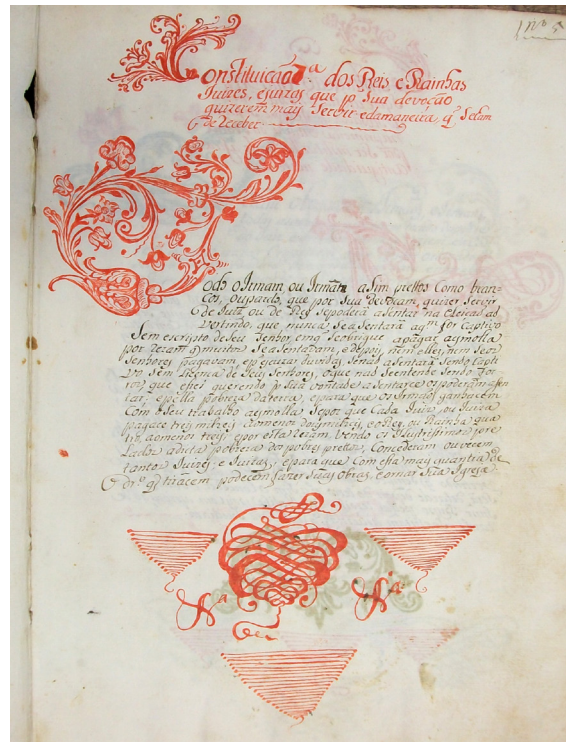 Nº 5
Constituição 7.ª dos Reis e Rainhas
Juizes, e juizas que p Sua devoção
quizerem mais Servir edamaneira q̃ Seham
de receber
Todo o Irmam ou Irmãa asim prettos Como bran-
cos, ou pardo, que por Sua devocam, quizer Servir
de Juiz ou de Rey Sepoderá asentar na eleicao ad
vertindo, que nunca Se asentará aqm for Captivo
Sem escripto de Seu Senhor, emq Seobrigue apagar aesmolla
por rezam q muitos Se asentavam, edepois, nem elles, nem Seos
Senhores pagavam
Vo Sem licença de Seus Senhores, oque nao Seentende Sendo For
ros, que estes querendo p Sua vontade asentarce ospoderam asen
tar, epella pobreza daterra, epara que os Irmãos ganhacem
Com o Seu trabalho aesmolla Sepos que Cada Juiz, ou Juiza
pagace tres mil reis aomenos dous mil reis, eoRey, ou Rainha qua
tro aomenos tres, epor esta rezam vendo os Illustrissimos pre
lados adita pobreza dos pobres prettos, Concederam ouverem
tantos Juizes e Juizas, epara que Com esta mais quantia de
dro q tiracem podecem fazer Suas obras, eornar Sua Igreja